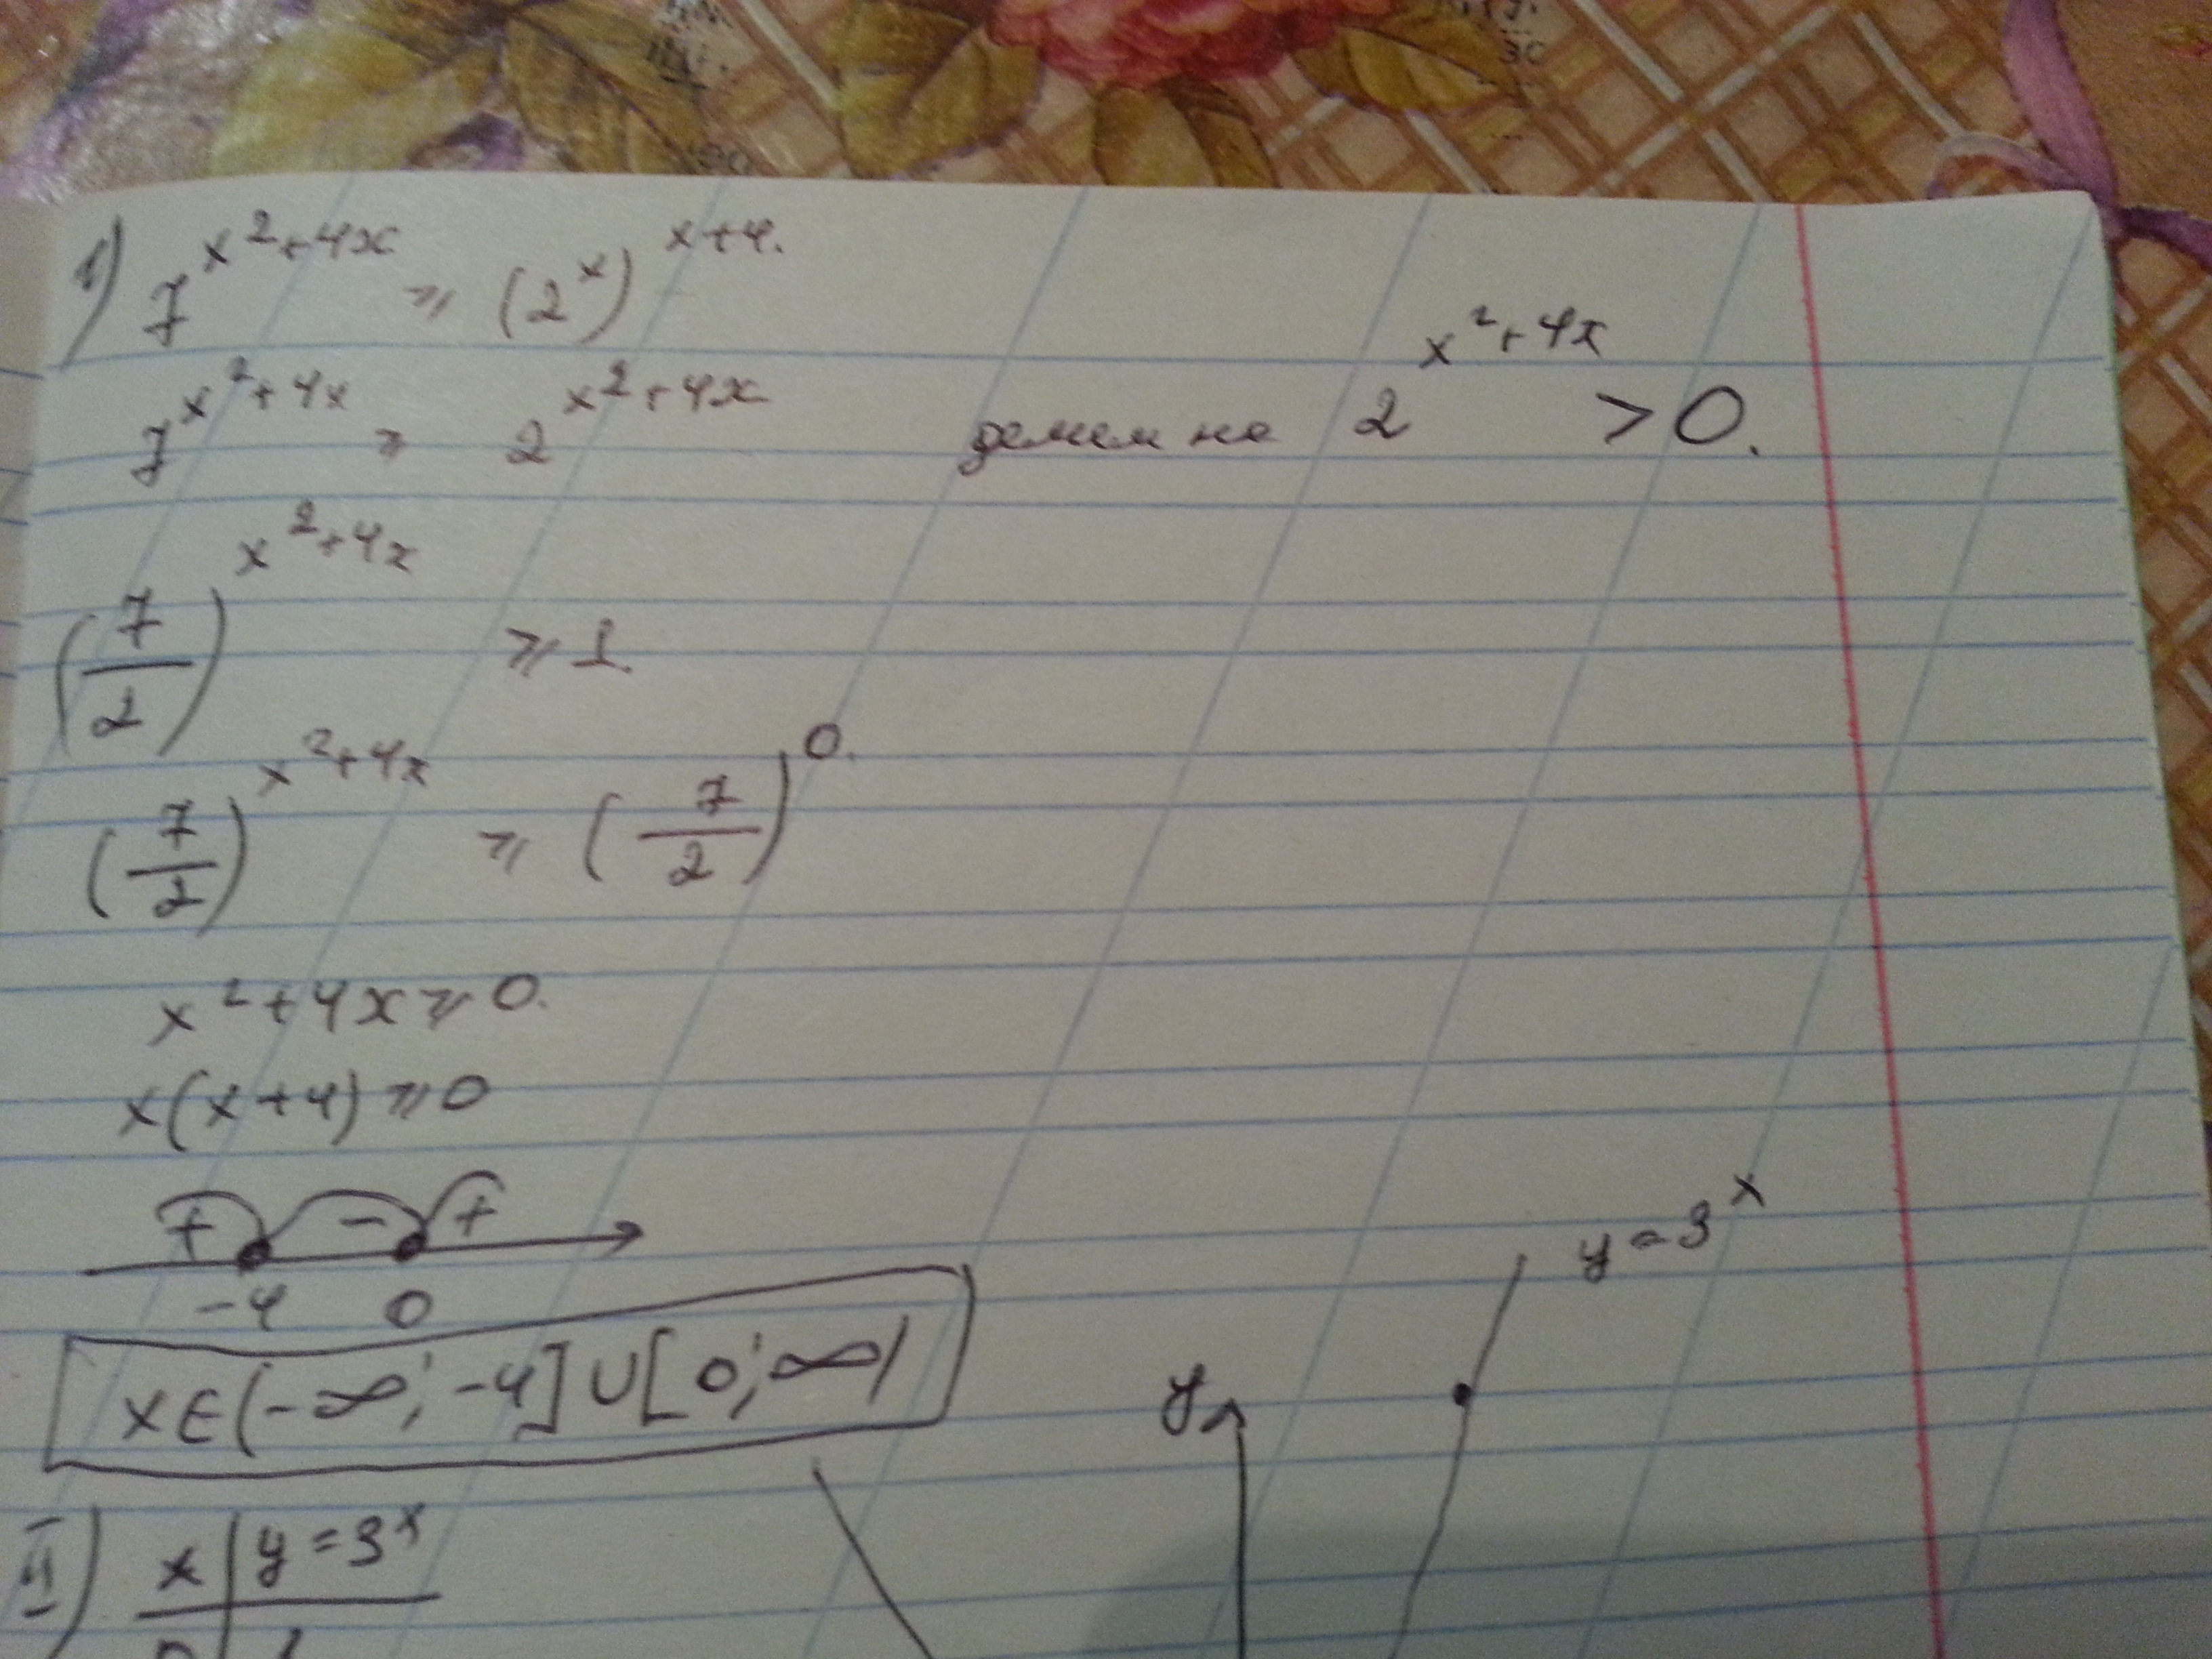 1) 7^(x²+4x) ⩾ (2^x)^(x+4).
7^(x²+4x) ⩾ 2^(x²+4x) делим на 2^(x²+4x) > 0.
(7/2)^(x²+4x) ⩾ 1.
(7/2)^(x²+4x) ⩾ (7/2)^0.
x²+4x ⩾ 0.
x(x+4) ⩾ 0
+ − +
−4 0
y = 3^x
x∈(−∞; −4]∪[0; ∞)
y
II) x | y = 3^x
0 | 1